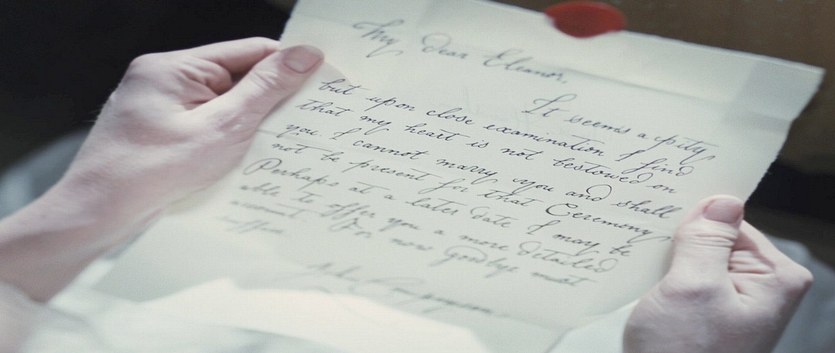 My Dear Eleanor,
It seems a pity,
but upon close examination I find
that my heart is not bestowed on
you. I cannot marry you and shall
not be present for that Ceremony.
Perhaps at a later date I may be
able to offer you a more detailed
account. For now Goodbye must
suffice.